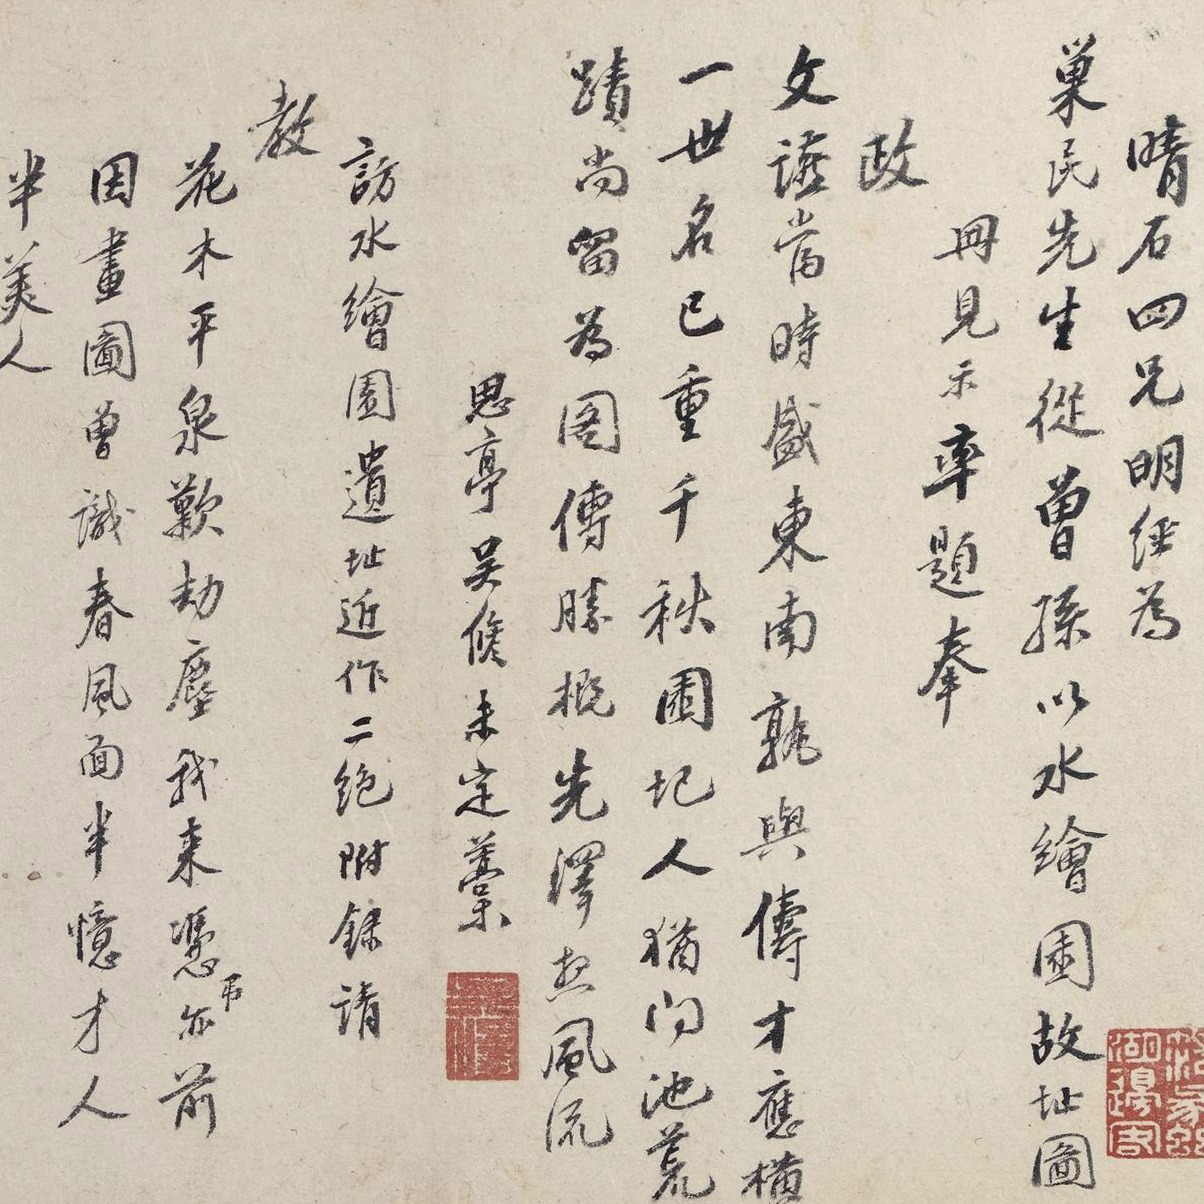 晴石四兄明經為
巢民先生從曾孫以水繪園故址圖
冊見示率題奉
政
文讌當時盛東南孰與儔才應楢
一世名已重千秋園圮人猶問池荒
蹟尚留為圖傳勝概先澤想風流
思亭吳修未定藁
訪水繪園遺址近作二絕附錄請
教
花木平泉歎劫塵我來憑弔亦前
因畫圖曾識春風面半憶才人
半美人